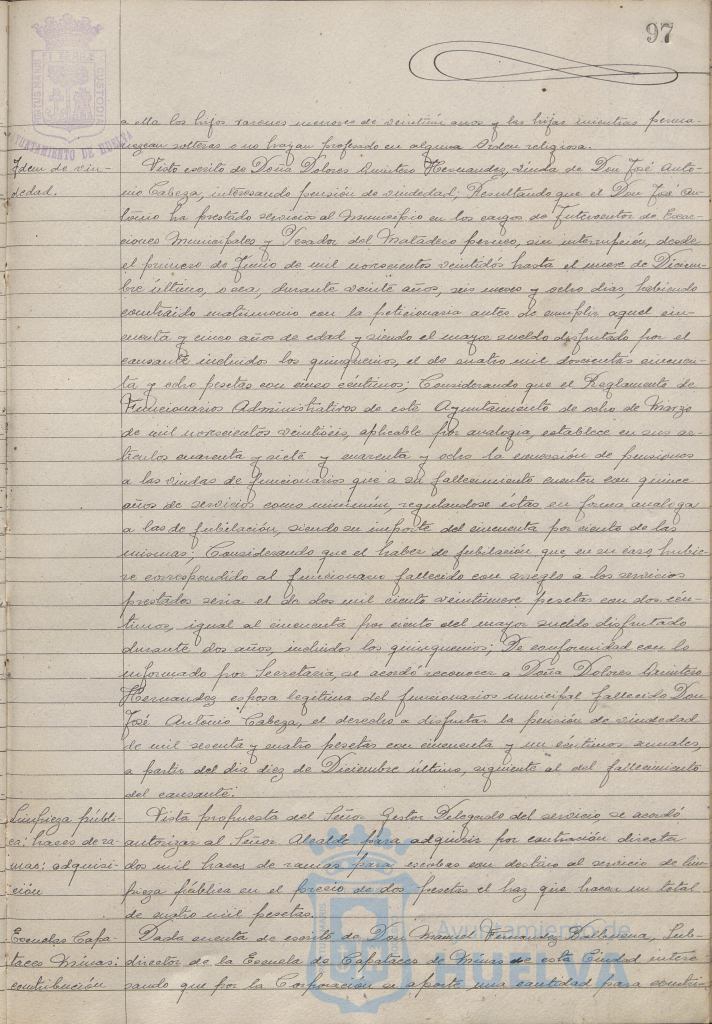 97
a ella los hijos varones menores de veintiún años y las hijas mientras perma-
nezcan solteras o no hayan profesado en alguna Orden religiosa.
Idem de viu-
dedad.
Visto escrito de Doña Dolores Quintero Hernandez, viuda de Don José Anto-
nio Cabeza, interesando pensión de viudedad; Resultando que el Don José An-
tonio ha prestado servicios al Municipio en los cargos de Interventor de Exac-
ciones Municipales y Pesador del Matadero perneo, sin interrupción, desde
el primero de Junio de mil novecientos veintidós hasta el nueve de Diciem-
bre último, o sea, durante veinte años, seis meses y ocho dias, habiendo
contraido matrimonio con la peticionaria antes de cumplir aquel cin-
cuenta y cinco años de edad y siendo el mayor sueldo disfrutado por el
causante incluidos los quinquenios, el de cuatro mil doscientas cincuen-
ta y ocho pesetas con cinco céntimos; Considerando que el Reglamento de
Funcionarios Administrativos de este Ayuntamiento de ocho de Marzo
de mil novecientos veintiseis, aplicable por analogia, establece en sus ar-
ticulos cuarenta y siete y cuarenta y ocho la concesión de pensiones
a las viudas de funcionarios que a su fallecimiento cuenten con quince
años de servicios como minimun, regulandose éstas en forma analoga
a las de jubilación, siendo su importe del cincuenta por ciento de las
mismas; Considerando que el haber de jubilación que, en su caso, hubie-
re correspondido al funcionario fallecido con arreglo a los servicios
prestados seria el de dos mil ciento veintinueve pesetas con dos cén-
timos, igual al cincuenta por ciento del mayor sueldo disfrutado
durante dos años, incluidos los quinquenios; De conformidad con lo
informado por Secretaria, se acordó reconocer a Doña Dolores Quintero
Hernandez esposa legitima del funcionarios municipal fallecido Don
José Antonio Cabeza, el derecho a disfrutar la pensión de viudedad
de mil sesenta y cuatro pesetas con cincuenta y un céntimos anuales,
a partir del dia diez de Diciembre último, siguiente al del fallecimiento
del causante.
Limpieza públi-
ca: haces de ra-
mas: adquisi-
ción
Vista propuesta del Señor Gestor Delegado del servicio, se acordó
autorizar al Señor Alcalde para adquirir por contración directa
dos mil haces de ramas para escobas con destino al servicio de lim-
pieza pública en el precio de dos pesetas el haz que hacen un total
de cuatro mil pesetas.
Escuelas Capa-
taces Minas:
contribución
Dada cuenta de escrito de Don Manuel Fernandez, Sub-
director de la Escuela de Capataces de Minas de esta Ciudad intere-
sando que por la Corporación se aporte una cantidad para contri-
AYUNTAMIENTO DE HUELVA
Ayuntamiento de
HUELVA